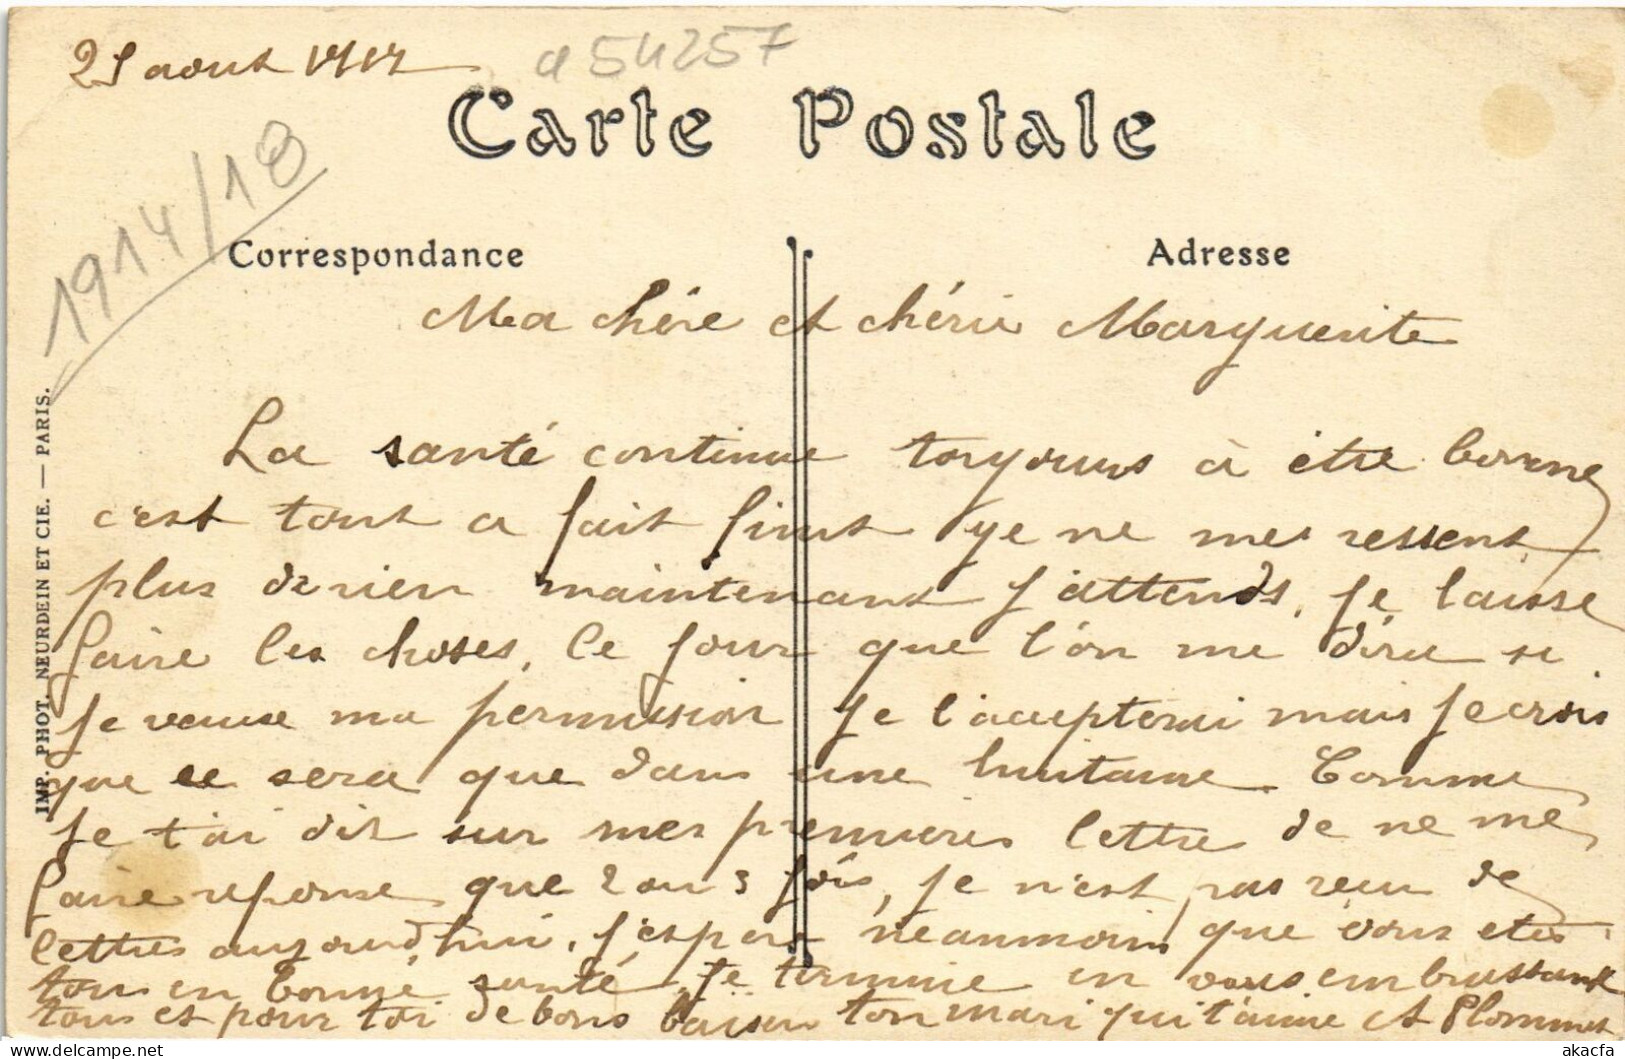 aout
a 54257
Carte Postale
1914/18
Correspondance
Adresse
Ma chère et chérie Marguerite
La santé continue toujours à être bonne
c'est tout a fait finit je ne me ressent
plus de rien maintenant j'attends, je laisse
faire les choses, le jour que l'on me dira si
je veux ma permission je l'accepterai mais je crois
que ce sera que dans une huitaine. Comme
je t'ai dit sur mes premieres lettre de ne me
faire reponse que 2 ou 3 fois, je n'est pas recu de
lettres aujourd'hui, j'espere neanmoins que vous etes
tous en bonne santé. Je termine en vous embrassant
tous et pour toi de bons baiser ton mari qui t'aime
IMP. PHOT. NEURDEIN ET CIE. — PARIS.
akacfa